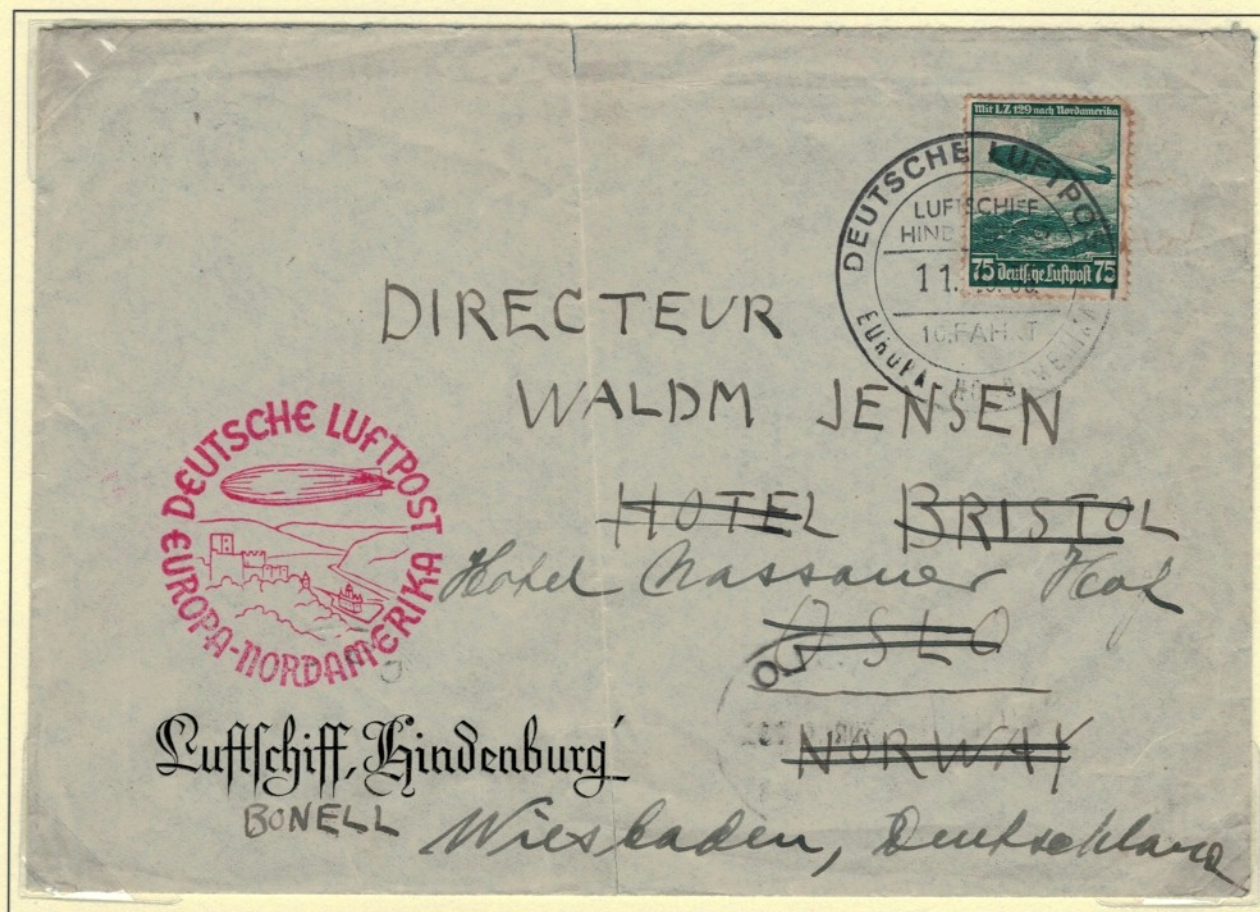 Mit LZ 129 nach Nordamerika
75 Deutsche Luftpost 75
DEUTSCHE LUFTPOST
LUFTSCHIFF
11.
10.FAHRT
EUROPA-NORDAMERIKA
DIRECTEUR
WALDM JENSEN
HOTEL BRISTOL
Hotel Nassauer Hof
OSLO
NORWAY
Wiesbaden, Deutschland
DEUTSCHE LUFTPOST
EUROPA-NORDAMERIKA
Luftschiff „Hindenburg“
BONELL